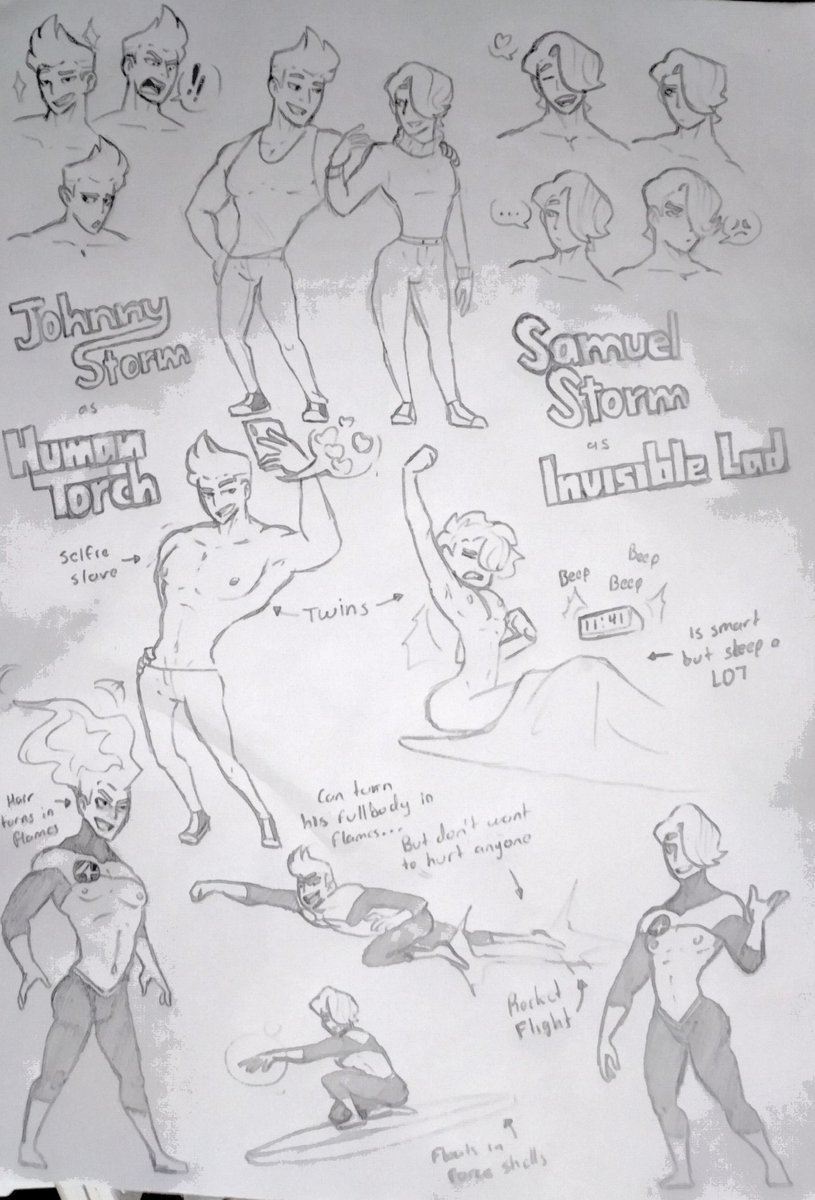 !!
...
Johnny
Storm
as
Human
Torch
Samuel
Storm
as
Invisible Lad
Selfie
slave
Twins
Beep
Beep
Beep
11:41
Is smart
but sleep a
LOT
Hair
turns in
flames
Can turn
his fullbody in
flames...
But don't want
to hurt anyone
Rocket
Flight
4
Floats in
Force shells